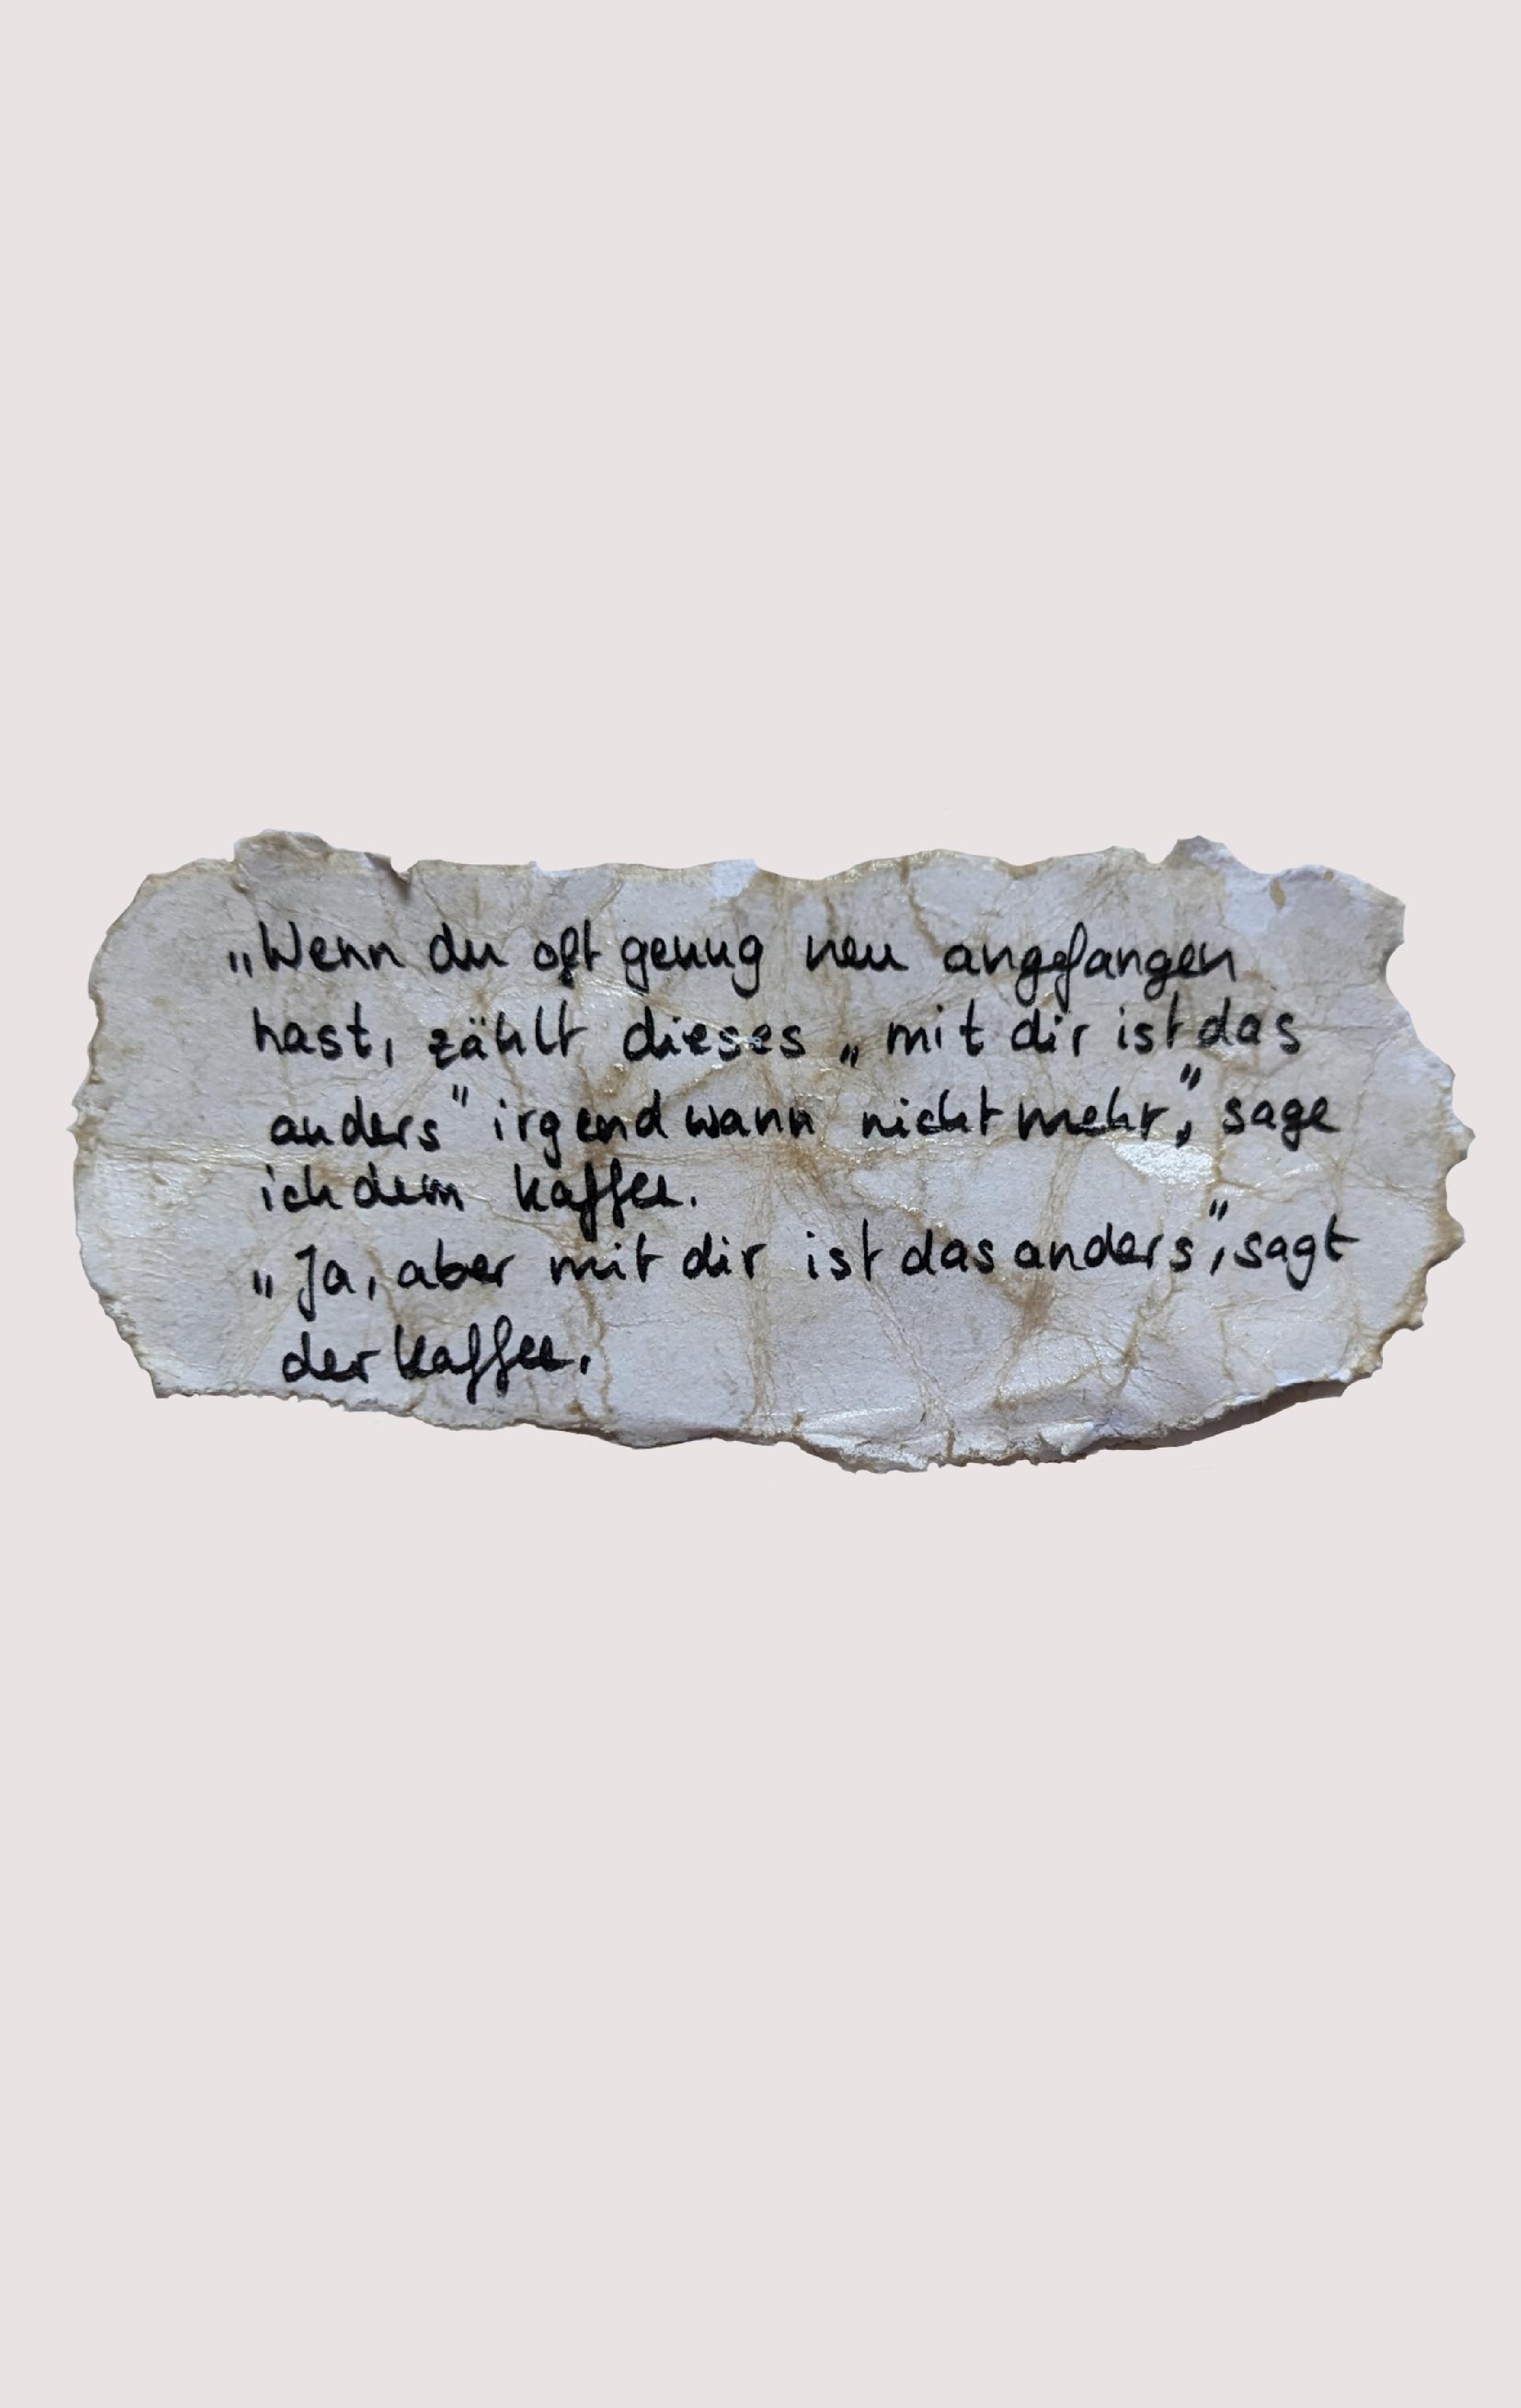 „Wenn du oft genug neu angefangen
hast, zählt dieses „mit dir ist das
anders" irgendwann nicht mehr," sage
ich dem Kaffee.
„Ja, aber mit dir ist das anders", sagt
der Kaffee.